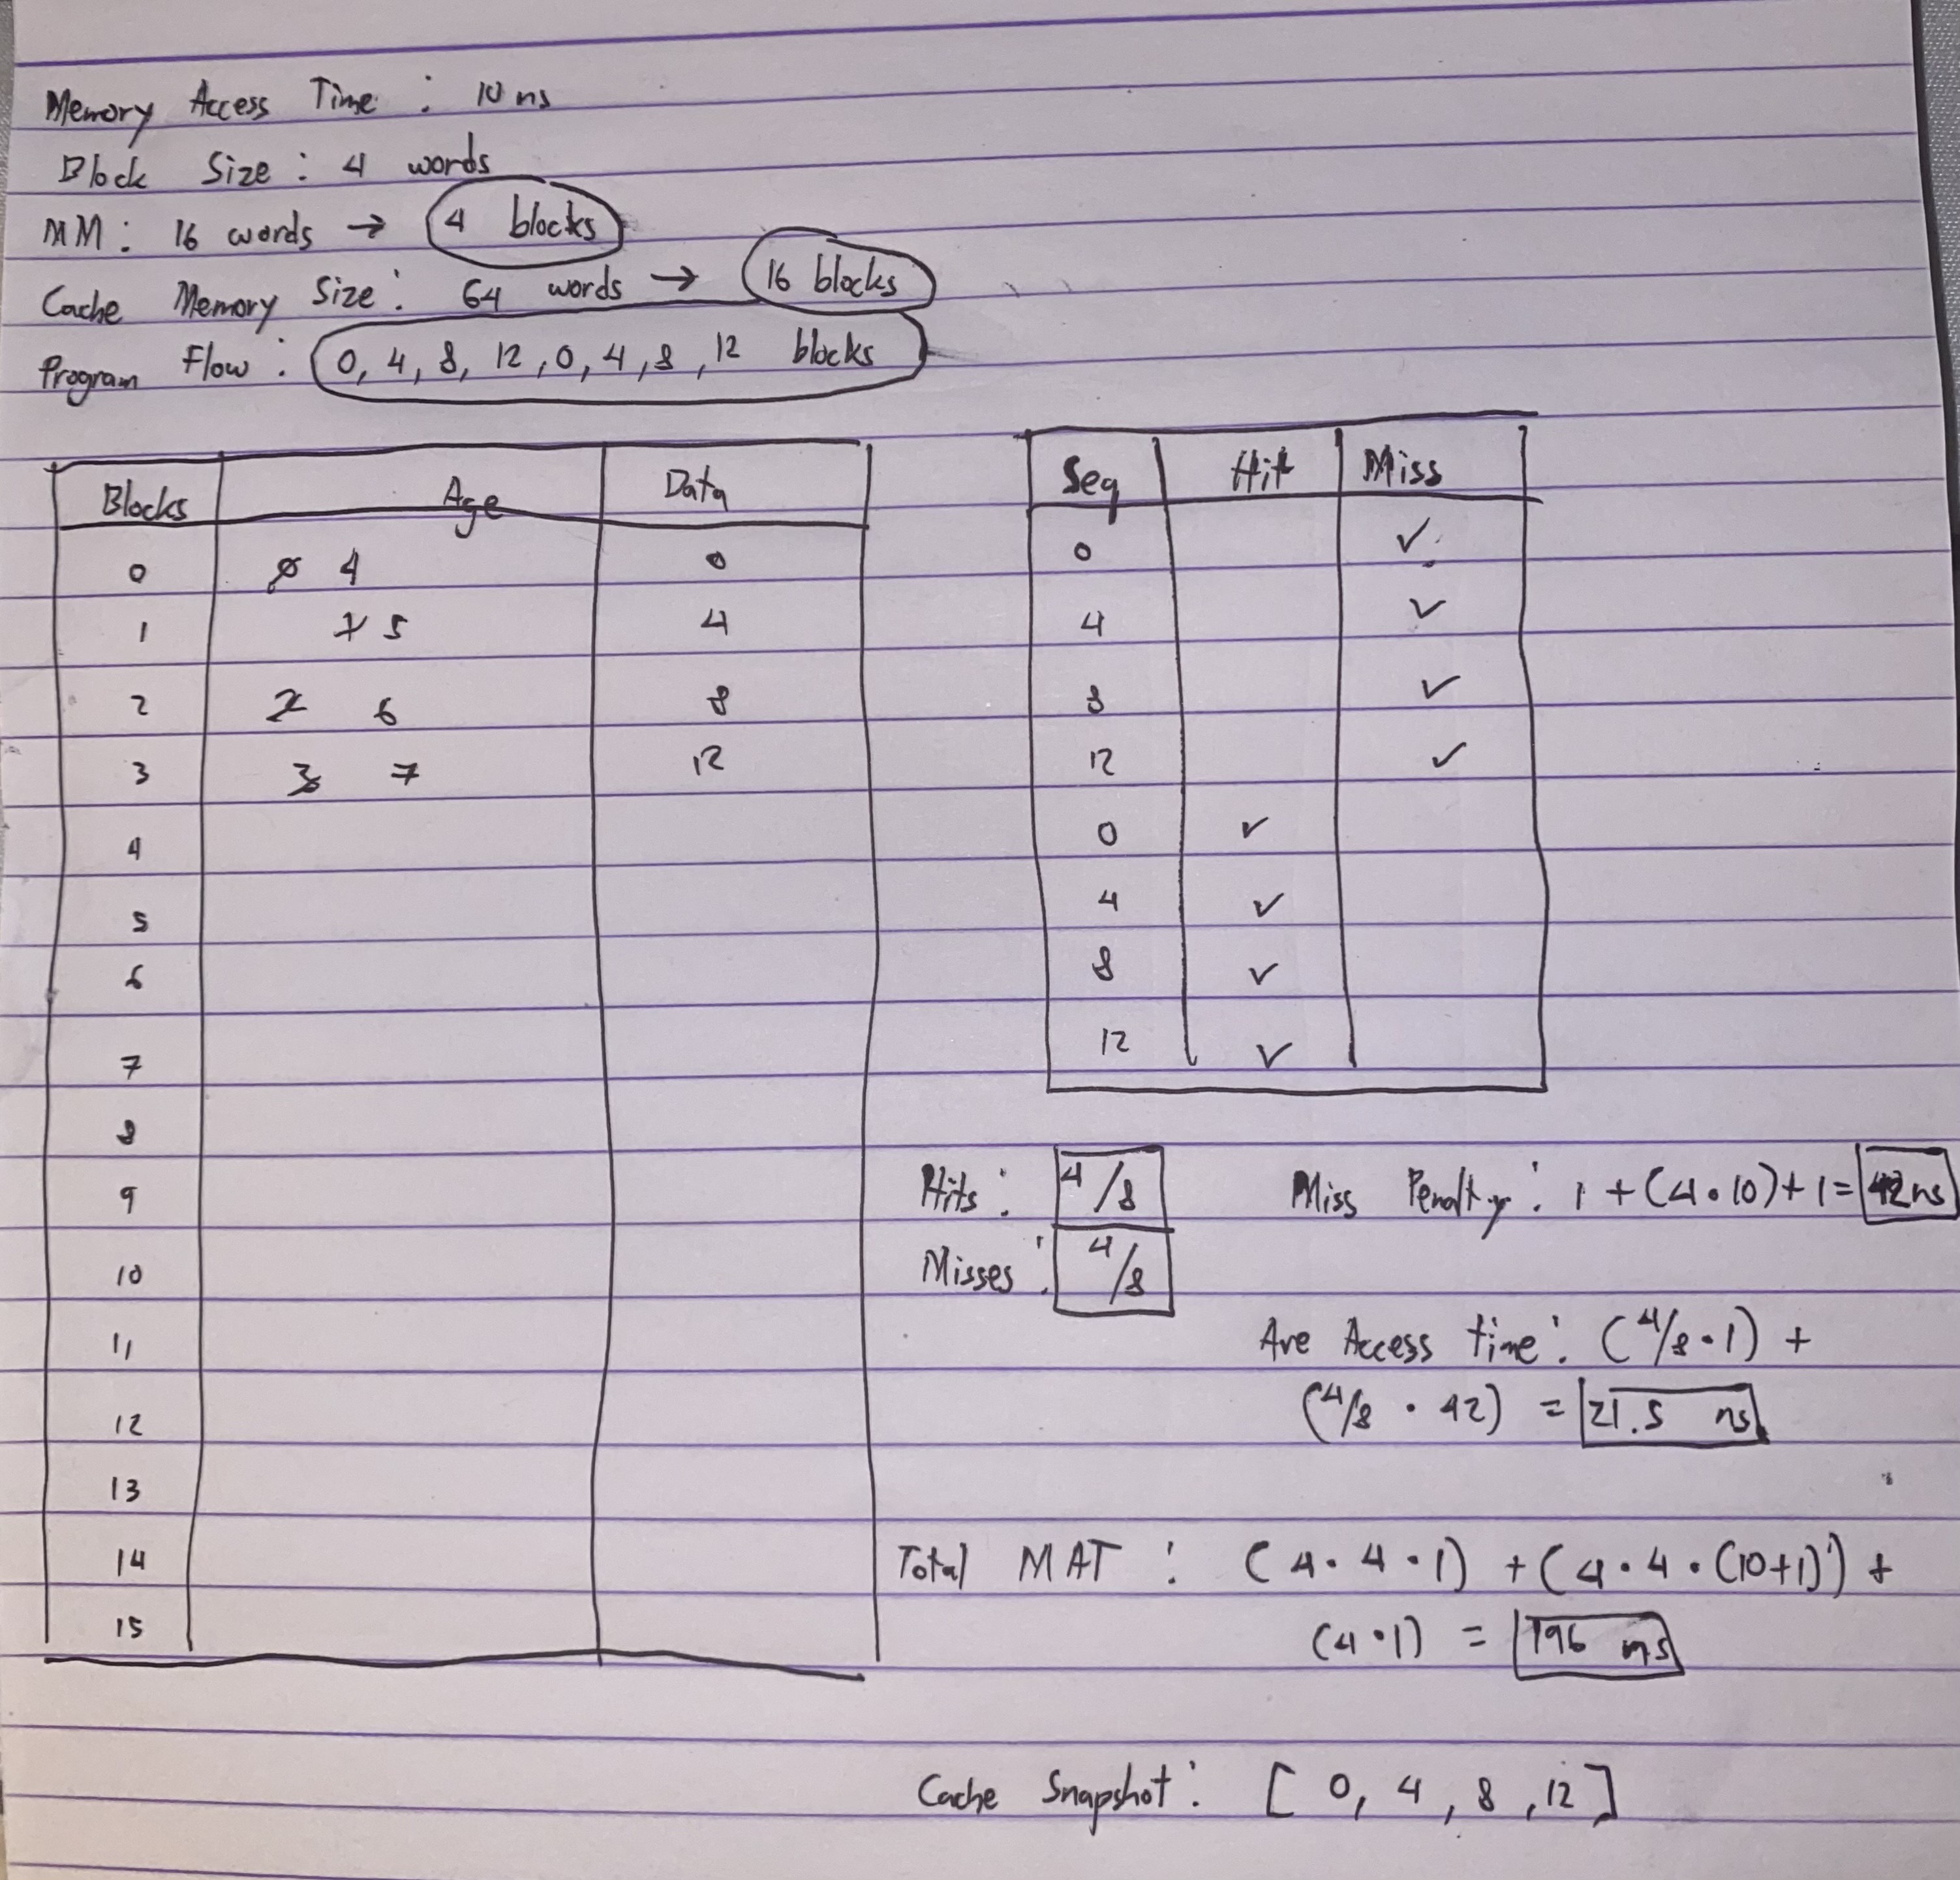 Memory Access Time : 10 ns
Block Size : 4 words
MM : 16 words → 4 blocks
Cache Memory Size : 64 words → 16 blocks
Program Flow : 0, 4, 8, 12, 0, 4, 8, 12 blocks
Blocks Age Data
0 0 4 0
1 1 5 4
2 2 6 8
3 3 7 12
4
5
6
7
8
9
10
11
12
13
14
15
Seq Hit Miss
0 ✓
4 ✓
8 ✓
12 ✓
0 ✓
4 ✓
8 ✓
12 ✓
Hits : 4/8
Misses : 4/8
Miss Penalty : 1 + (4 • 10) + 1 = 42 ns
Ave Access time : (4/8 • 1) +
(4/8 • 42) = 21.5 ns
Total MAT : (4 • 4 • 1) + (4 • 4 • (10+1)) +
(4 • 1) = 196 ns
Cache Snapshot : [ 0, 4, 8, 12 ]